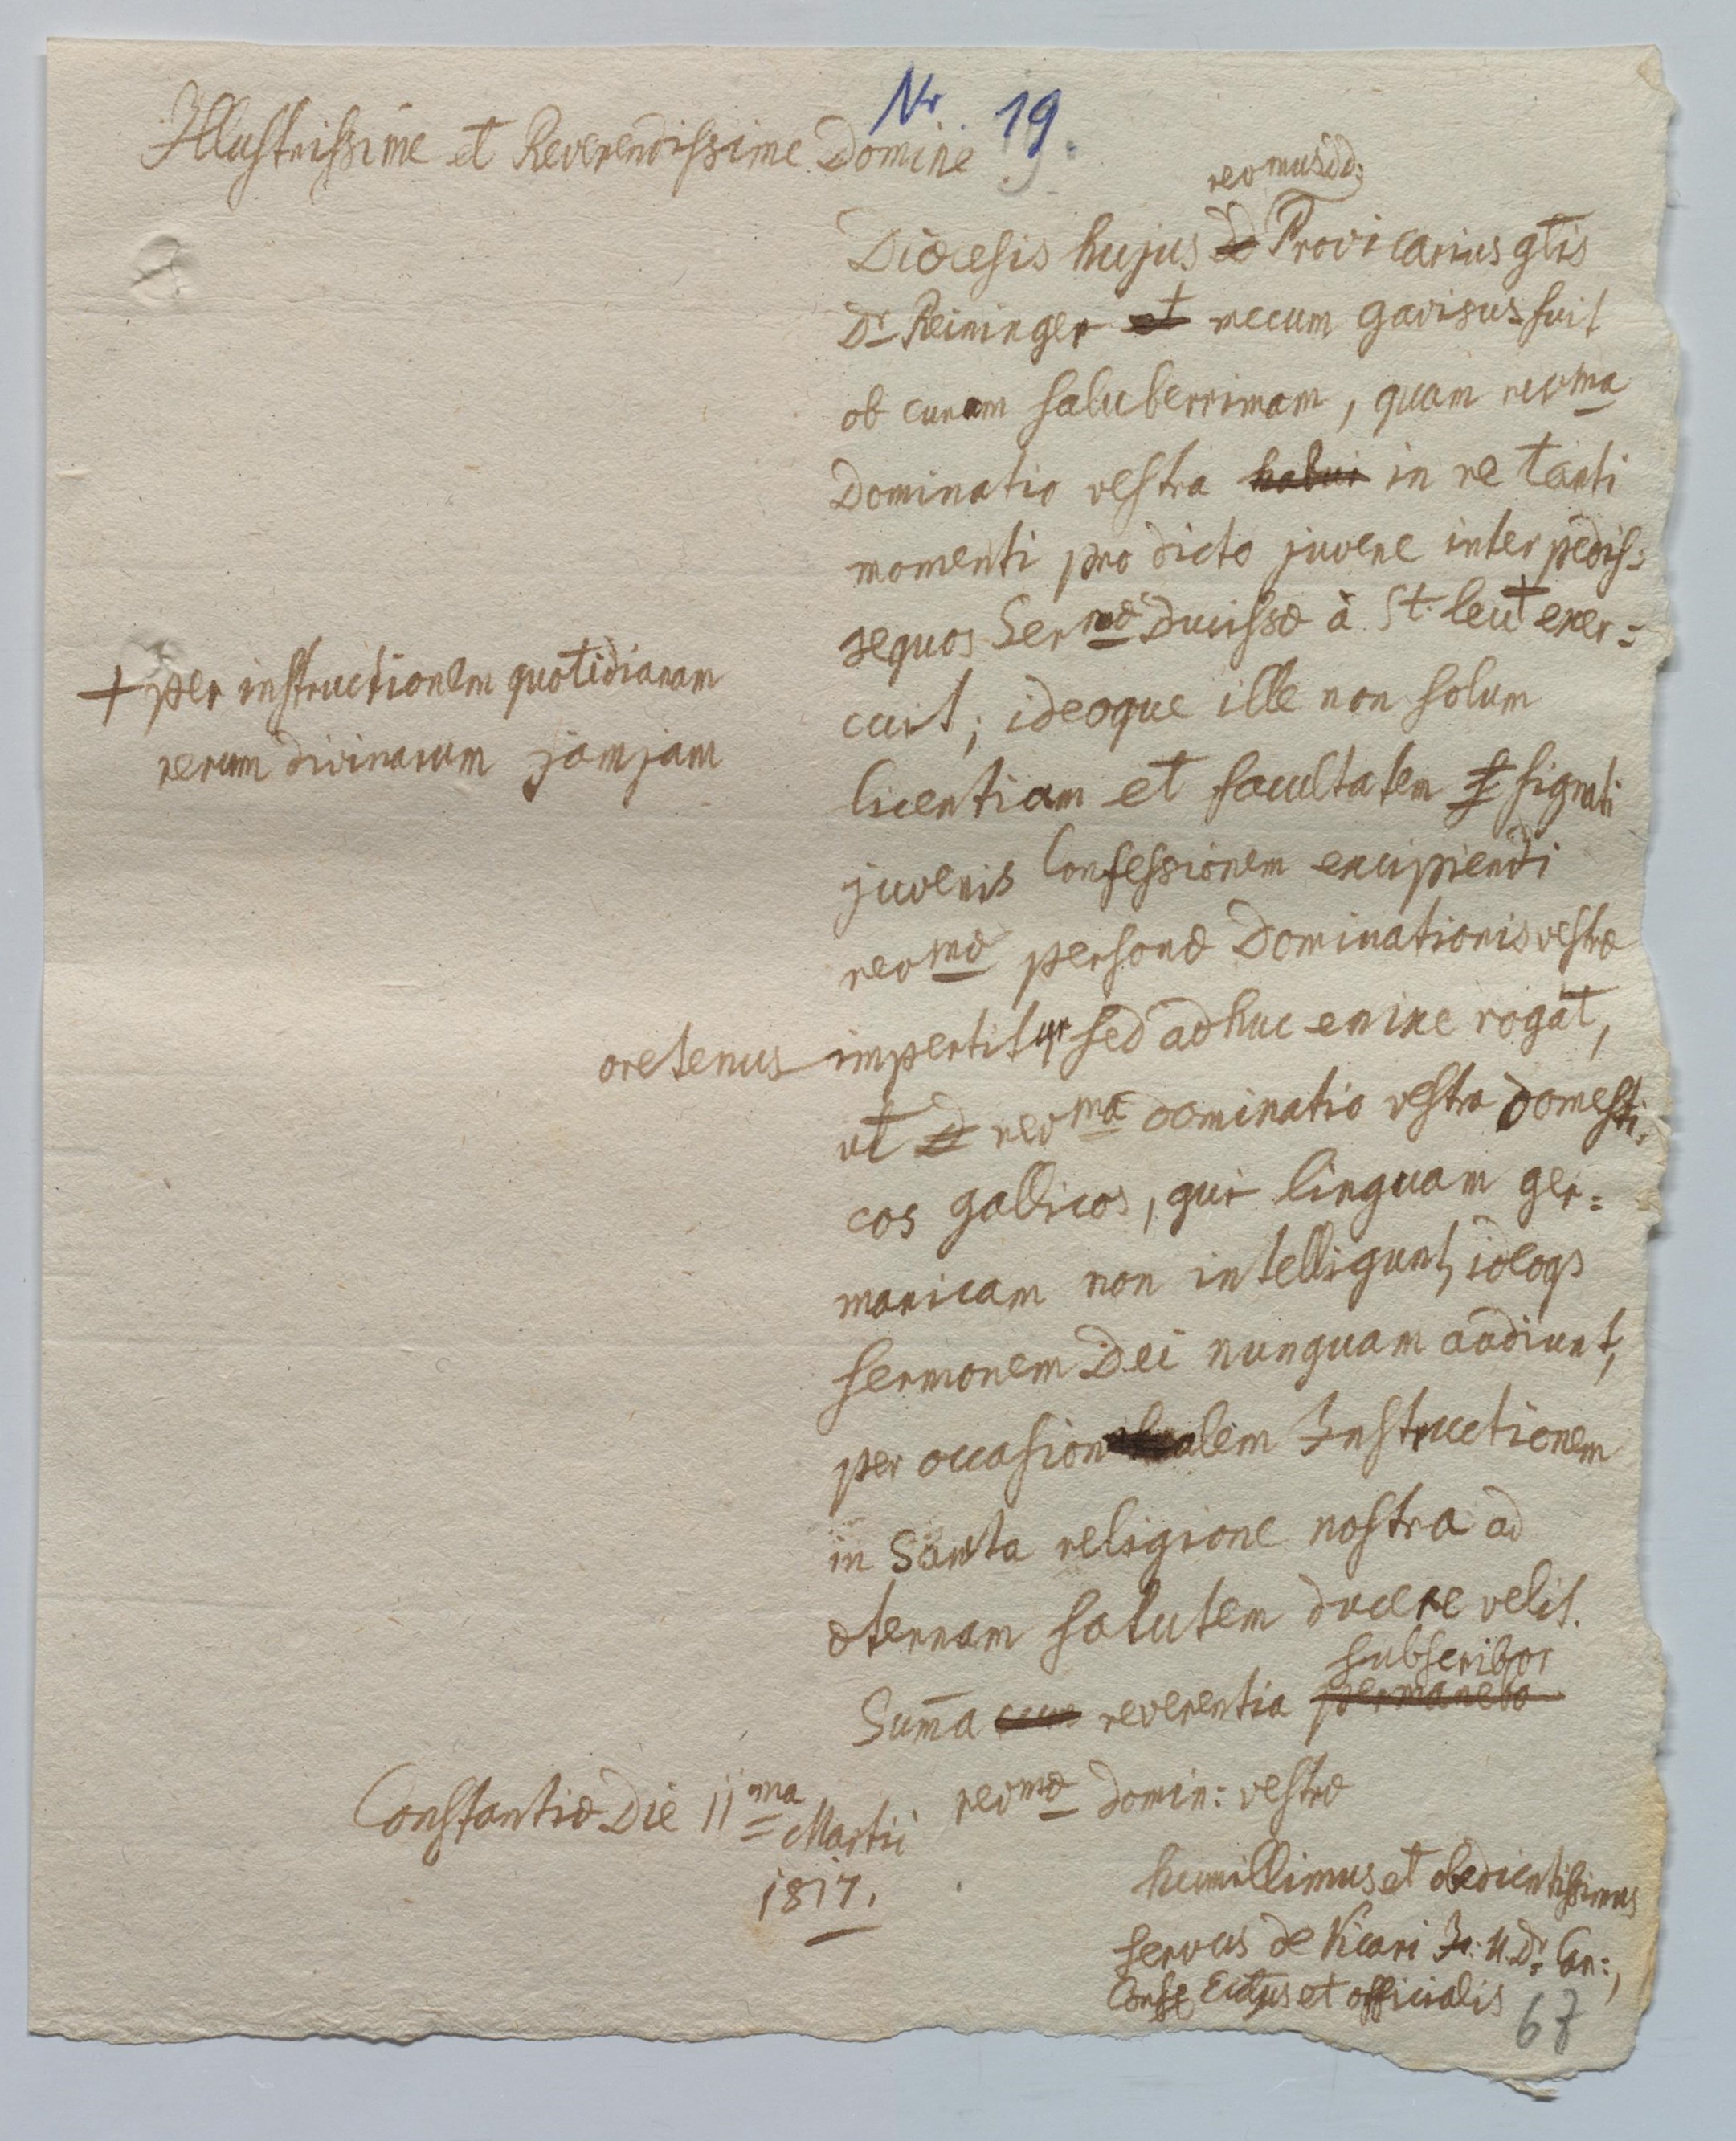 Nr. 19.
Illustrissime et Reverendissime Domine
revmus dd:
Diœcesis hujus Provicarius gtis
Dr Reininger et mecum gavisus fuit
ob curam saluberrimam, quam revma
Dominatio vestra habui in re tanti
momenti pro dicto juvene inter pedis:
sequos Sermæ Ducissæ à St. leu + exer:
+ per instructionem quotidianam
rerum divinarum jamjam
cuit; ideoque ille non solum
licentiam et facultatem signati
juvenis Confessionem excipiendi
revmæ personæ Dominationis vestræ
oretenus impertitur sed adhuc enixe rogat,
ut D revma dominatio vestra domesti:
cos gallicos, qui linguam ger:
manicam non intelligunt, ideoqs
sermonem Dei nunquam audiunt,
per occasionalem Instructionem
in Sancta religione nostra ad
æternam salutem ducere velit.
subscribor
Sum̄a cum reverentia permanebo
revmæ Domin: vestræ
Constantiæ Die 11ma Martii
1817.
humillimus et obedientissimus
servus de Vicari J. U. Dr. Can:,
Cons. Ecclus et officialis
67